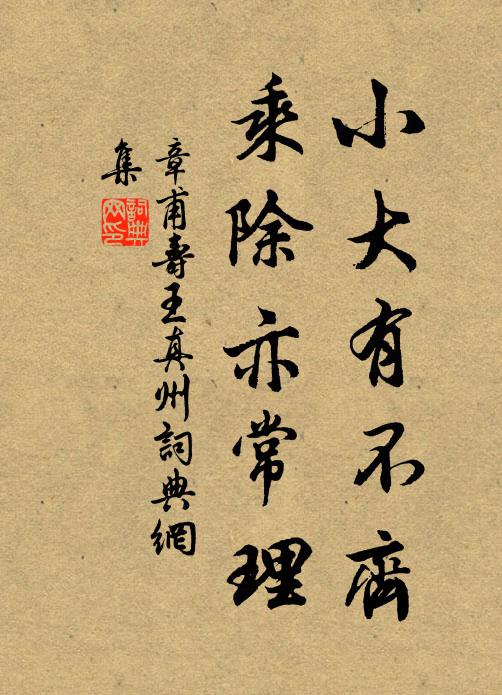 小大有不齊
乘除亦常理
章甫壽王真州詞典網
集
詞典網印